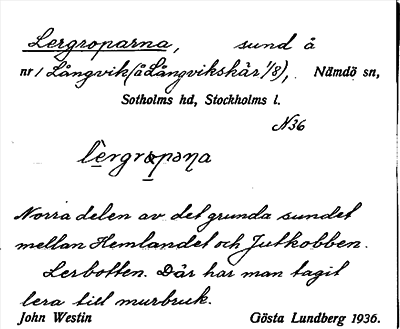 Lergroparna, sund å
nr 1 Långvik (å Långvikskär 1/8), Nämdö sn,
Sotholms hd, Stockholms l.
N36
lèrgropəṇa
Norra delen av det grunda sundet
mellan Hemlandet och Jutkobben.
Lerbotten. Där har man tagit
lera till murbruk.
John Westin Gösta Lundberg 1936.